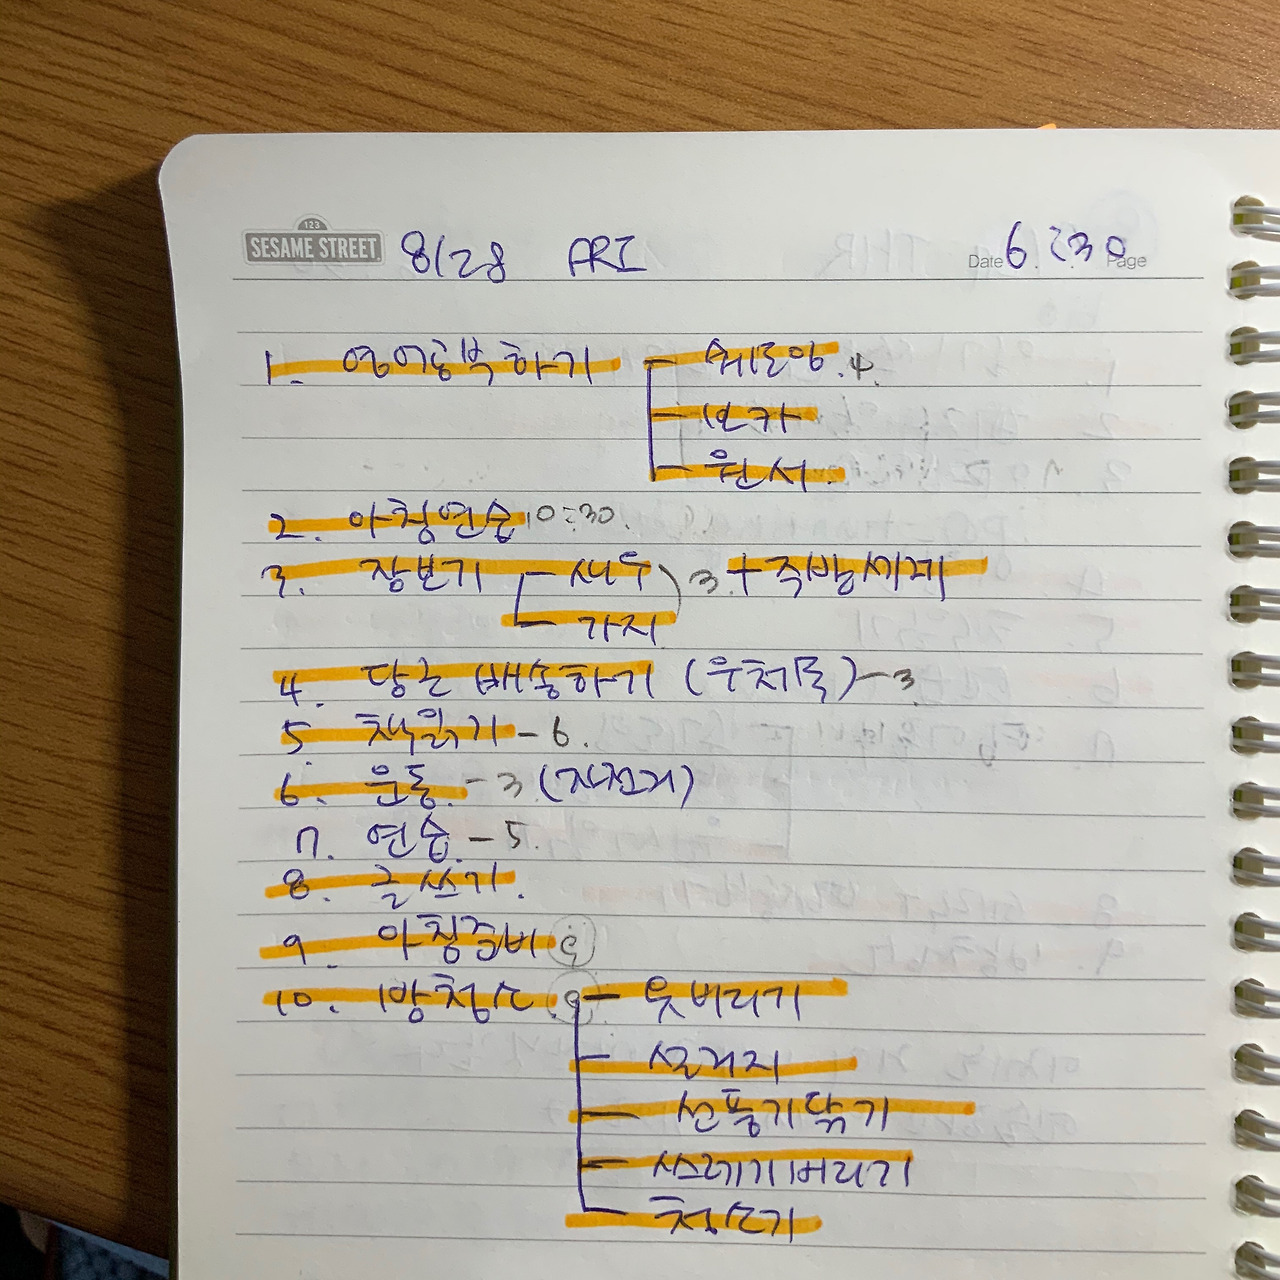 123
SESAME STREET
8/28 FRI
Date 6:30 Page
1. 영어공부하기 - 쉐도잉. 4.
- 인강
- 원서.
2. 아침연습 10:30.
3. 장보기 - 새우 3. + 주방세제
- 가지
4. 당근 배송하기 (우체국) - 3
5. 책읽기 - 6.
6. 운동. - 3 (자전거)
7. 연습. - 5.
8. 글쓰기.
9. 아침준비
10. 방청소. - 옷버리기
- 설거지
- 선풍기닦기
- 쓰레기버리기
- 청소기